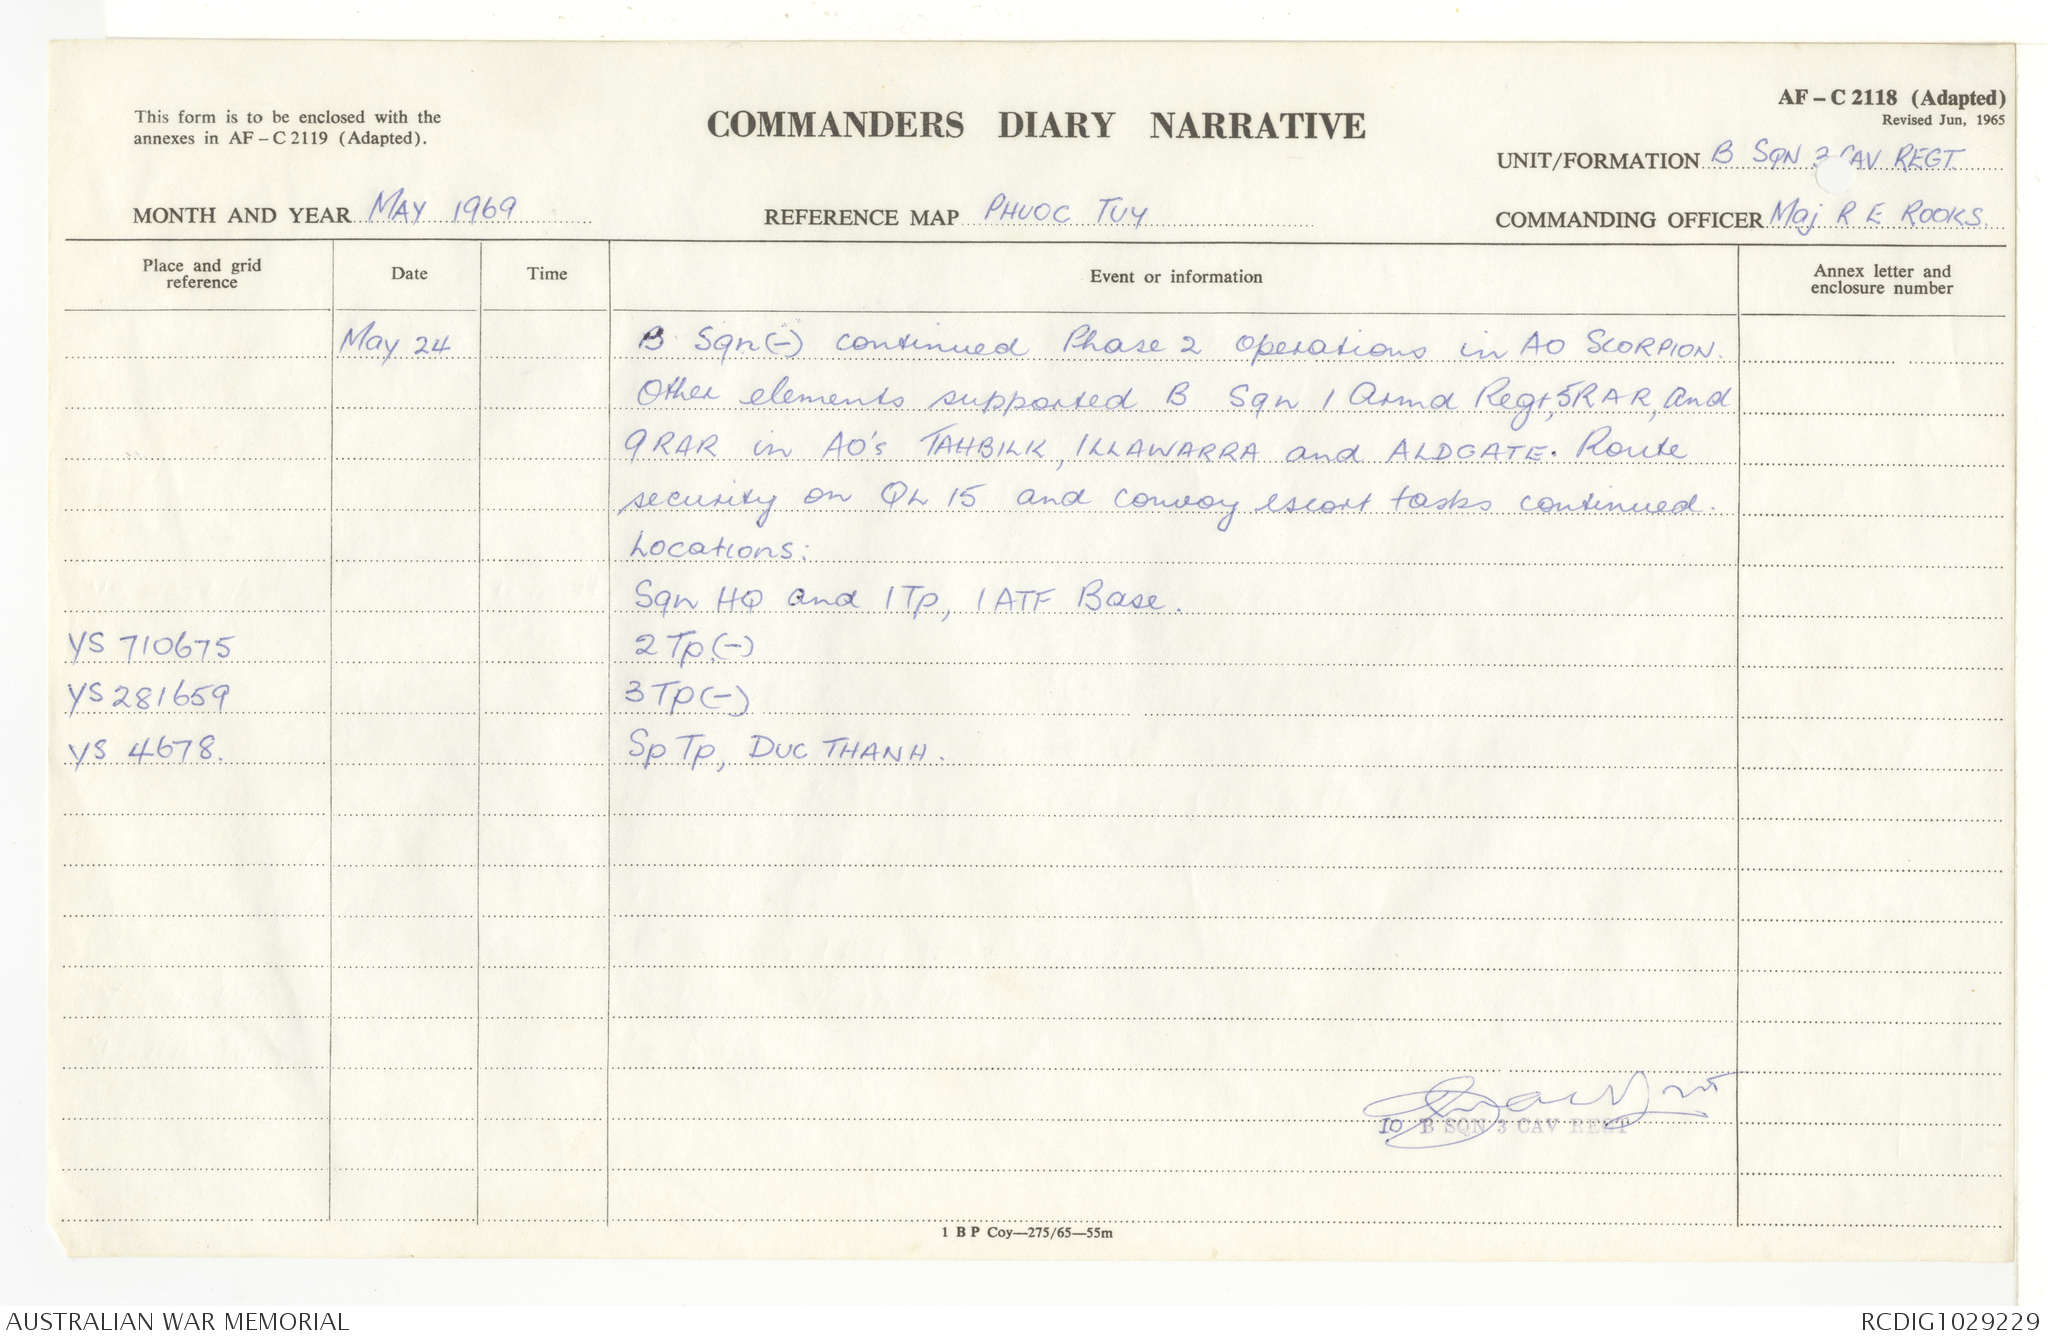 This form is to be enclosed with the
annexes in AF – C 2119 (Adapted).
COMMANDERS DIARY NARRATIVE
AF – C 2118 (Adapted)
Revised Jun, 1965
UNIT/FORMATION B SQN 3 CAV REGT.
MONTH AND YEAR MAY 1969
REFERENCE MAP PHUOC TUY
COMMANDING OFFICER Maj R E ROOKS.
Place and grid reference
Date
Time
Event or information
Annex letter and enclosure number
May 24 B Sqn(-) continued Phase 2 operations in AO SCORPION.
Other elements supported B Sqn 1 Armd Regt, 5RAR, and
9RAR in AO's TAHBILK, ILLAWARRA and ALDGATE. Route
security on QL 15 and convoy escort tasks continued.
Locations:
Sqn HQ and 1Tp, 1ATF Base.
YS 710675 2 Tp(-)
YS 281659 3 Tp(-)
YS 4678. Sp Tp, DUC THANH.
IO B SQN 3 CAV REGT
1 B P Coy—275/65—55m
AUSTRALIAN WAR MEMORIAL
RCDIG1029229